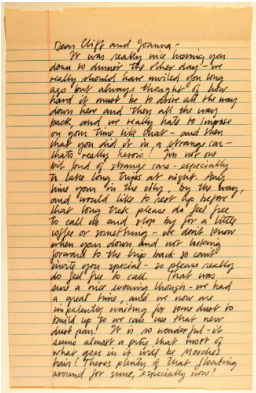 Dear Cliff and Joanna -
It was really nice having you
down to dinner the other day - we
really should have invited you long
ago but always thought of how
hard it must be to drive all the way
down here and then all the way
back, and we really hate to impose
on your time like that - and then
that you did it in a strange car -
that's really heroic I'm not one
bit fond of strange cars - especially
to take long trips at night. Any
time your in the city, by the way,
and would like to rest up before
that long trek please do feel free
to call us and stop by for a little
coffee or something - we don't know
when your down and not looking
forward to the trip back so can't
invite you special - so please really
do feel free to call. That was
sure a nice evening though - we had
a great time, and we now are
impatiently waiting for some dust to
build up so we can use that new
dust pan! It is so wonderful - it
seems almost a pity that most of
what goes in it will be
hairs! Theres plenty of that floating
around for sure, especially now!